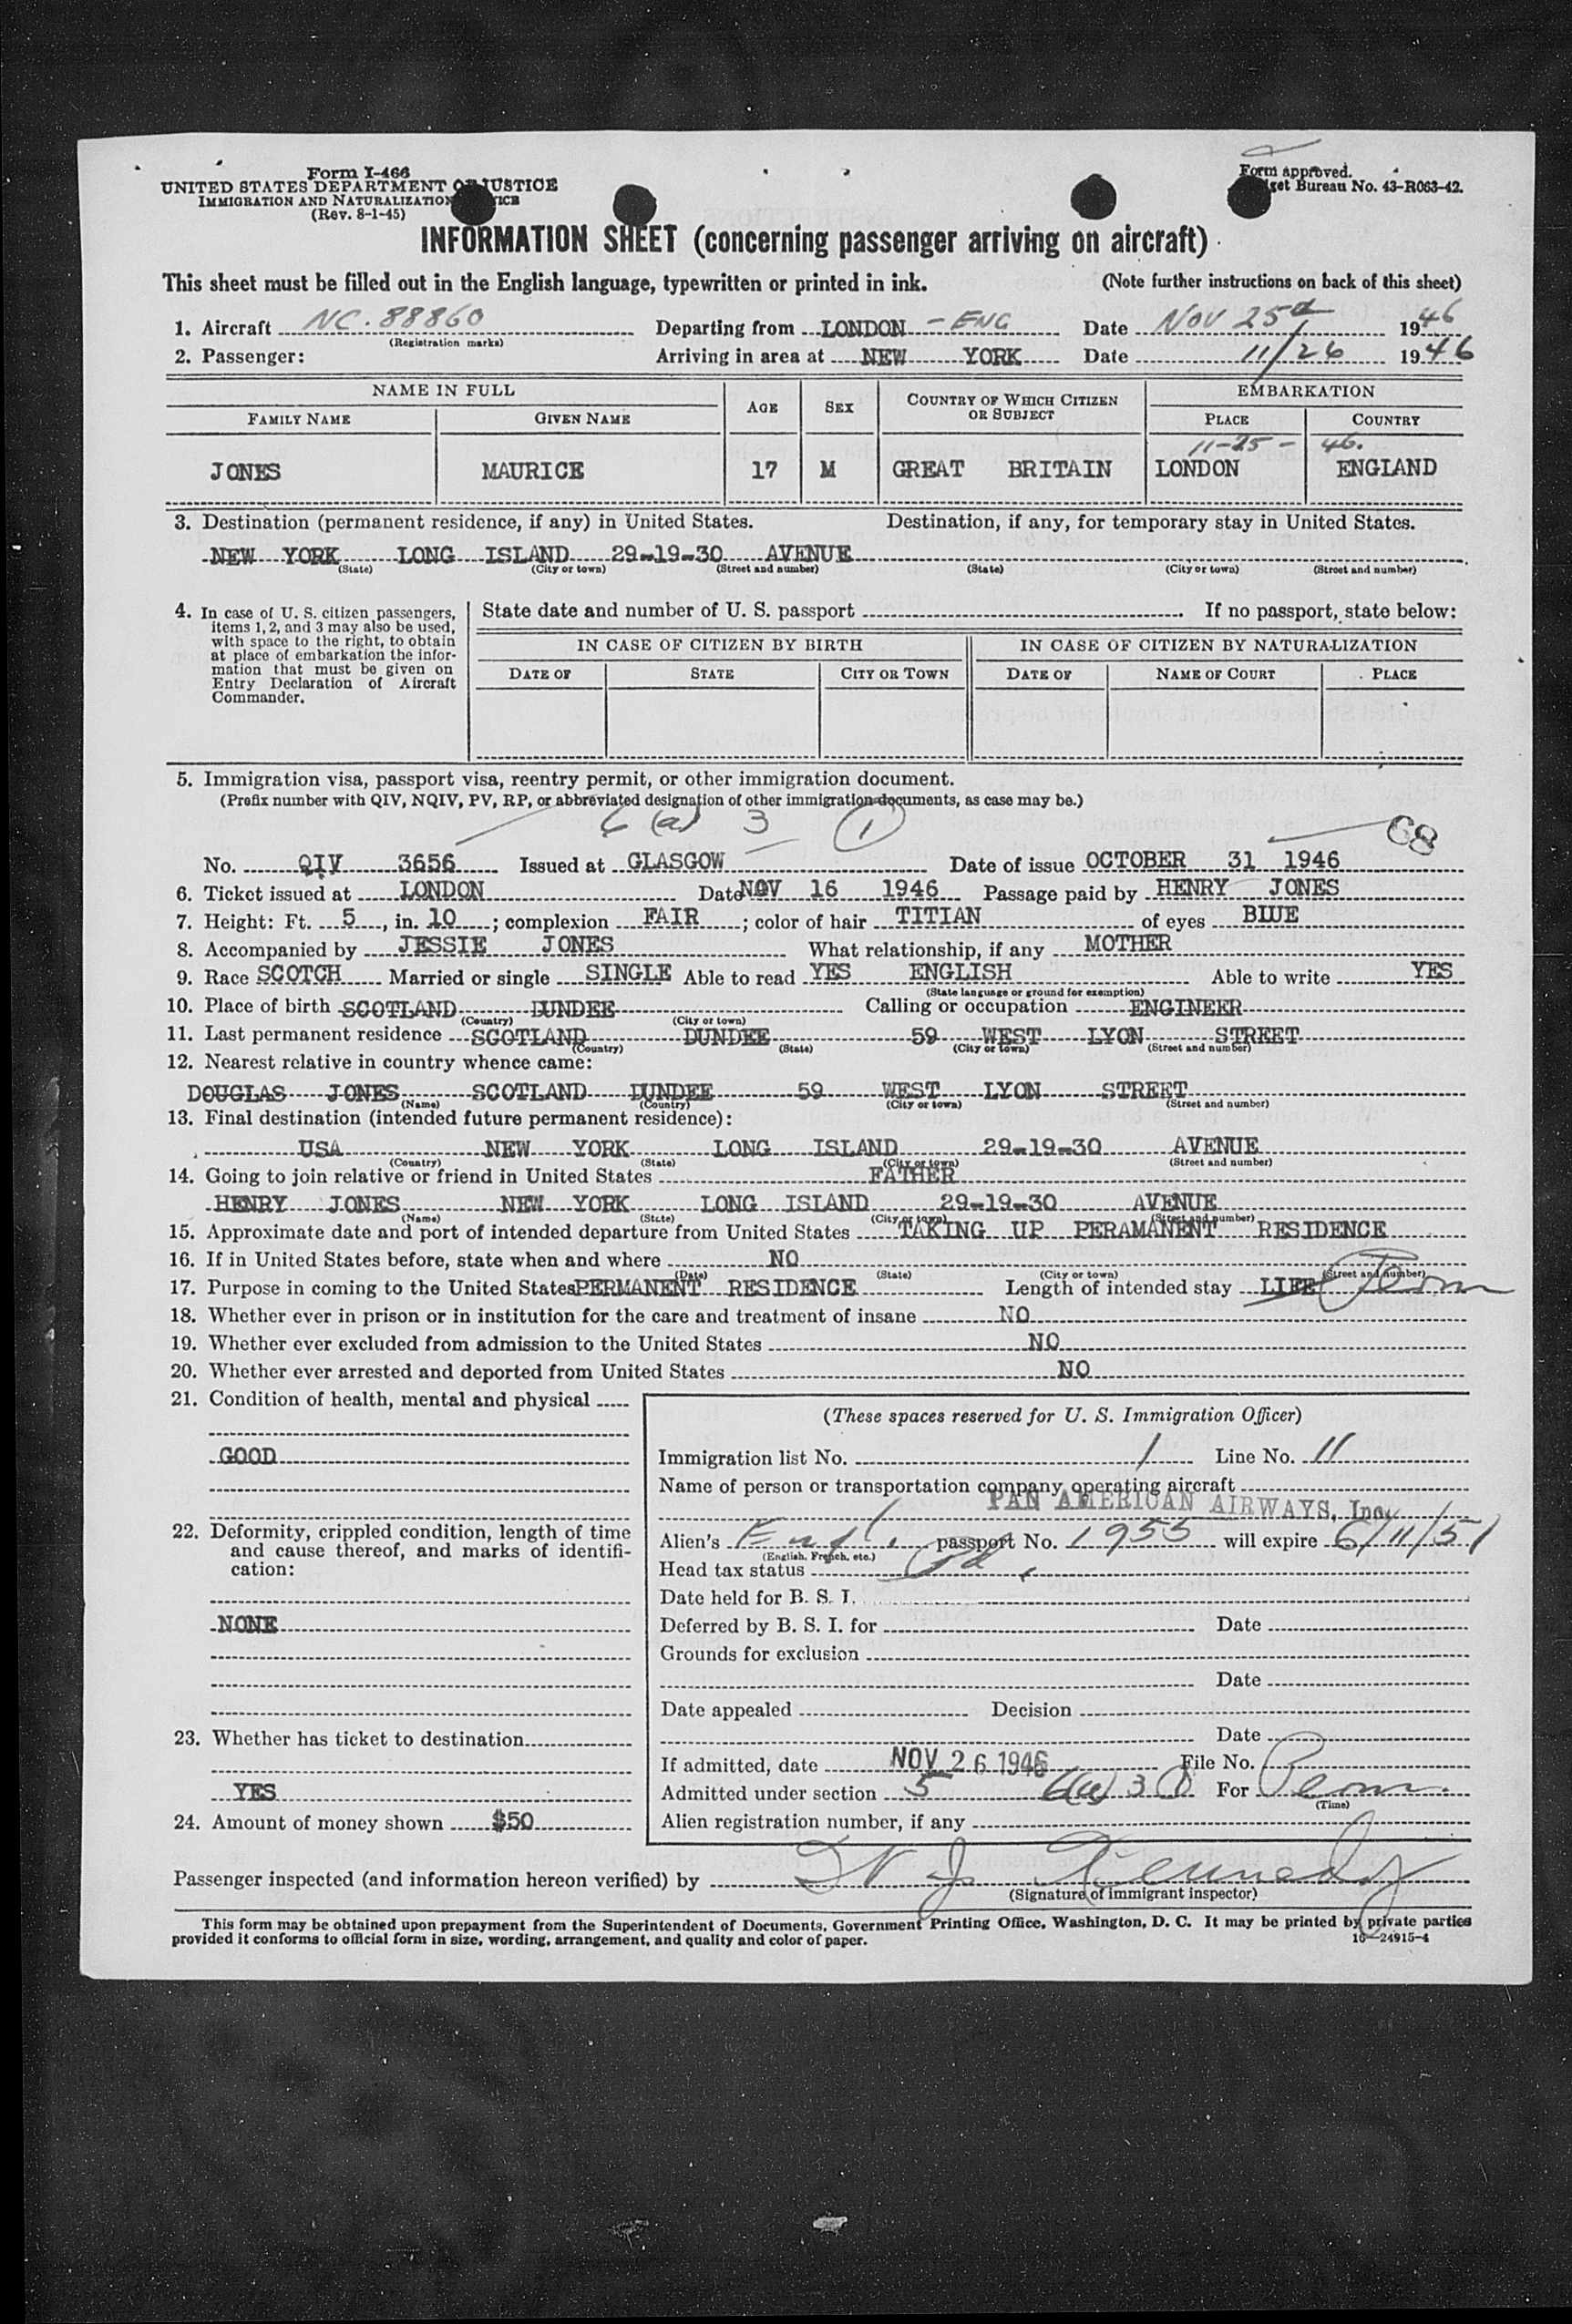 Form I-466
UNITED STATES DEPARTMENT OF JUSTICE
IMMIGRATION AND NATURALIZATION
(Rev. 8-1-45)
Form approved.
Bureau No. 43-R063-42.
INFORMATION SHEET (concerning passenger arriving on aircraft)
This sheet must be filled out in the English language, typewritten or printed in ink. (Note further instructions on back of this sheet)
1. Aircraft NC-88860 Departing from LONDON - ENG Date NOV 25d 1946
(Registration marks)
2. Passenger: Arriving in area at NEW YORK Date 11/26 1946
NAME IN FULL AGE SEX COUNTRY OF WHICH CITIZEN OR SUBJECT EMBARKATION
FAMILY NAME GIVEN NAME PLACE COUNTRY
11-25-46.
JONES MAURICE 17 M GREAT BRITAIN LONDON ENGLAND
3. Destination (permanent residence, if any) in United States. Destination, if any, for temporary stay in United States.
NEW YORK LONG ISLAND 29-19-30 AVENUE
(State) (City or town) (Street and number) (State) (City or town) (Street and number)
4. In case of U. S. citizen passengers, items 1, 2, and 3 may also be used, with space to the right, to obtain at place of embarkation the information that must be given on Entry Declaration of Aircraft Commander.
State date and number of U. S. passport If no passport, state below:
IN CASE OF CITIZEN BY BIRTH IN CASE OF CITIZEN BY NATURALIZATION
DATE OF STATE CITY OR TOWN DATE OF NAME OF COURT PLACE
5. Immigration visa, passport visa, reentry permit, or other immigration document.
(Prefix number with QIV, NQIV, PV, RP, or abbreviated designation of other immigration documents, as case may be.)
6 (a) 3 (1) 68
No. QIV 3656 Issued at GLASGOW Date of issue OCTOBER 31 1946
6. Ticket issued at LONDON Date NOV 16 1946 Passage paid by HENRY JONES
7. Height: Ft. 5, in. 10; complexion FAIR; color of hair TITIAN of eyes BLUE
8. Accompanied by JESSIE JONES What relationship, if any MOTHER
9. Race SCOTCH Married or single SINGLE Able to read YES ENGLISH Able to write YES
(State language or ground for exemption)
10. Place of birth SCOTLAND DUNDEE Calling or occupation ENGINEER
(Country) (City or town)
11. Last permanent residence SCOTLAND DUNDEE 59 WEST LYON STREET
(Country) (State) (City or town) (Street and number)
12. Nearest relative in country whence came:
DOUGLAS JONES SCOTLAND DUNDEE 59 WEST LYON STREET
(Name) (Country) (City or town) (Street and number)
13. Final destination (intended future permanent residence):
USA NEW YORK LONG ISLAND 29-19-30 AVENUE
(Country) (State) (City or town) (Street and number)
14. Going to join relative or friend in United States FATHER
HENRY JONES NEW YORK LONG ISLAND 29-19-30 AVENUE
(Name) (State) (City or town) (Street and number)
15. Approximate date and port of intended departure from United States TAKING UP PERAMANENT RESIDENCE
16. If in United States before, state when and where NO
(Date) (State) (City or town) (Street and number)
17. Purpose in coming to the United States PERMANENT RESIDENCE Length of intended stay LIFE Perm
18. Whether ever in prison or in institution for the care and treatment of insane NO
19. Whether ever excluded from admission to the United States NO
20. Whether ever arrested and deported from United States NO
21. Condition of health, mental and physical
GOOD
22. Deformity, crippled condition, length of time and cause thereof, and marks of identification:
NONE
23. Whether has ticket to destination
YES
24. Amount of money shown $50
(These spaces reserved for U. S. Immigration Officer)
Immigration list No. 1 Line No. 11
Name of person or transportation company operating aircraft
PAN AMERICAN AIRWAYS, Inc.
Alien's Engl. passport No. 1955 will expire 6/11/51
(English, French, etc.)
Head tax status Pd.
Date held for B. S. I.
Deferred by B. S. I. for Date
Grounds for exclusion
Date
Date appealed Decision
Date
If admitted, date NOV 26 1946 File No.
Admitted under section 5 6(a) 3 (1) For Perm.
(Time)
Alien registration number, if any
Passenger inspected (and information hereon verified) by J. Kennedy
(Signature of immigrant inspector)
This form may be obtained upon prepayment from the Superintendent of Documents, Government Printing Office, Washington, D. C. It may be printed by private parties
provided it conforms to official form in size, wording, arrangement, and quality and color of paper. 16-24915-4